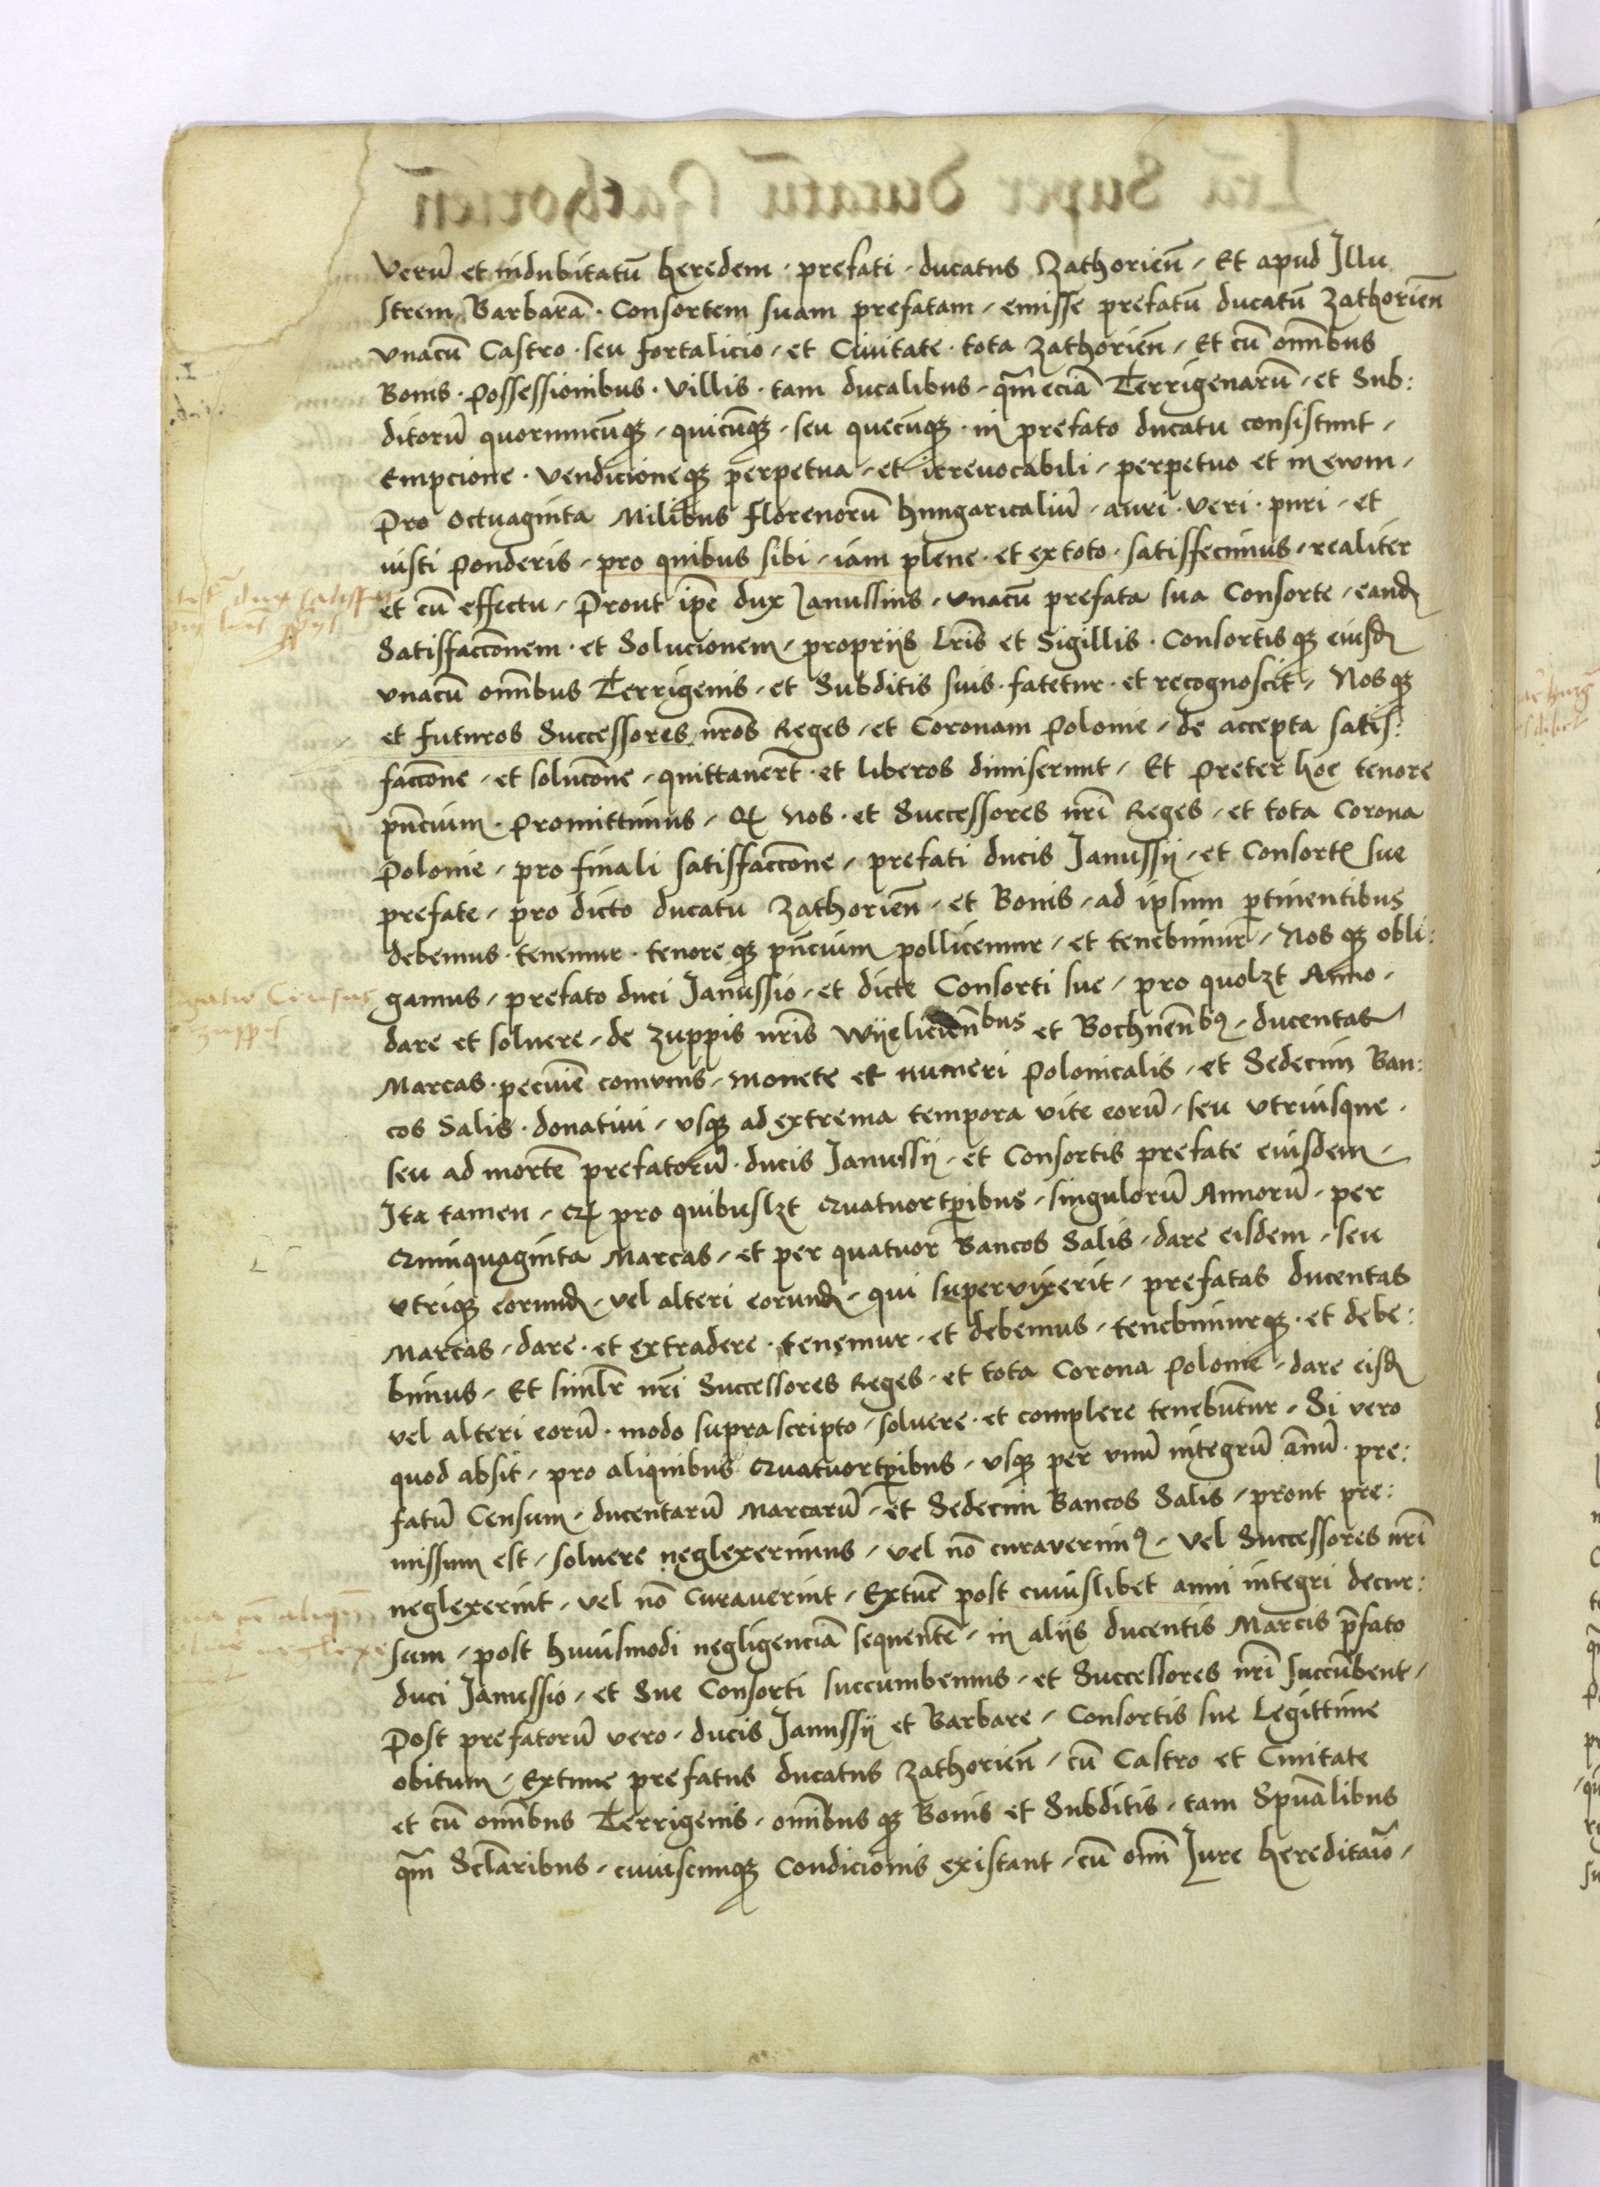 Verū et indubitatū heredem · prefati · ducatus Zathorieñ / Et apud Illu
strem Barbarā · Consortem suam prefatam / emisse prefatū ducatū Zathorieñ
vnacū Castro · seu fortalicio / et Ciuitate · tota Zathorieñ / Et cū om̄ibus
Bonis · Possessionibus · Villis · tam ducalibus / q̄m eciā Terrigenarū / et Sub:
ditorū quorumcūqꝫ / quicūqꝫ / seu quecūqꝫ · in prefato ducatu consistunt /
Empcione · Vendicioneqꝫ perpetua / et irreuocabili / perpetuo et in ewm /
Pro Octuaginta Milibus florenorū hungaricaliū / auri · veri · puri / et
iusti Ponderis / pro quibus sibi / iam plene · et ex toto · satisfecimus / realiter
et cū effectu / Prout ip̄e dux Janussius / vnacū prefata sua Consorte / eandꝫ
Satisfacc̄onem · et Solucionem / proprijs Lr̄is et Sigillis · Consortis qꝫ eiusdꝫ
vnacū om̄ibus Terrigenis / et Subditis suis · fatetur · et recognoscit / Nos qꝫ
et futuros Successores nr̄os Reges / et Coronam Polonie / de accepta satis:
facc̄one / et soluc̄one / quittauer̄t · et liberos dimiserunt / Et preter hoc tenore
pn̄cium · Promittimus / Qꝫ Nos · et Successores nr̄i Reges / et tota Corona
Polonie / pro finali satisfacc̄one / prefati ducis Janussij / et Consortꝭ sue
prefate / pro dicto ducatu Zathorieñ / et Bonis / ad ipsum ꝑtinentibus
debemus · tenemur · tenore qꝫ pn̄cium pollicemur / et tenebimur / Nos qꝫ obli:
gamus / prefato duci Janussio / et dicte Consorti sue / pro quolꝫt Anno /
dare et soluere / de Zuppis nr̄is Wijelicieñbus et Bochneñbꝰ / ducentas
Marcas · pecunie comunis / Monete et numeri Polonicalis / et Sedecim Ban:
cos Salis · donatiui / vsqꝫ ad extrema tempora vite eorū / seu vtriusque ·
seu ad mortē prefatorū · ducis Janussij / et Consortis prefate eiusdem /
Ita tamen / Qꝫ pro quibuslꝫt Quatuortꝑibus / singulorū Annorū / per
Quinquaginta Marcas / et per quatuor Bancos Salis / dare eisdem / seu
vtriqꝫ eorundꝫ / vel alteri eorundꝫ / qui supervixerit / prefatas ducentas
Marcas / dare · et extradere · tenemur · et debemus / tenebimurqꝫ · et debe:
bimus / Et simil̄r nr̄i Successores Reges / et tota Corona Polonie / dare eisdꝫ
vel alteri eorū · modo suprascripto / soluere · et complere tenebūtur / Si vero
quod absit / pro aliquibus Quatuortꝑibus / vsqꝫ per vnū integrū an̄ū · pre:
fatū Censum / ducentarū Marcarū / et Sedecim Bancos Salis / prout pre:
missum est / soluere neglexerimus / vel nō curauerimꝰ / vel Successores nr̄i
neglexerint / vel nō Curauerint / Extūc post cuiuslibet anni integri decur:
sum / post huiusmodi negligenciā sequentē / in alijs ducentis Marcis p̄fato
duci Janussio / et Sue Consorti succumbemus / et Successores nr̄i succūbent /
Post prefatorū vero / ducis Janussij et Barbare / Consortis sue Legittime
obitum / Extunc prefatus ducatus Zathorieñ / cū Castro et Ciuitate
et cū om̄ibus Terrigenis / om̄ibus qꝫ Bonis et Subditis / tam Spūalibus
q̄m Sc̄laribus / cuiuscumqꝫ Condicionis existant / cū om̄i Jure hereditaio̅ /